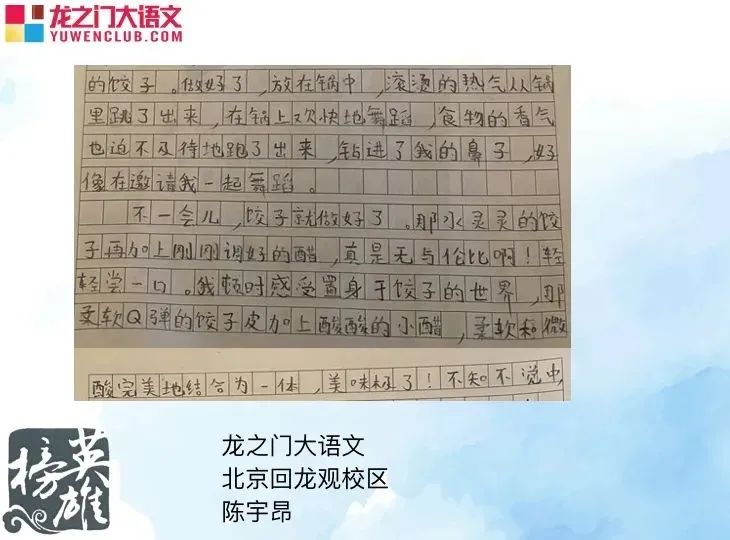 龙之门大语文
YUWENCLUB.COM
的饺子。做好了，放在锅中，滚烫的热气从锅
里跳了出来，在锅上欢快地舞蹈，食物的香气
也迫不及待地跑了出来，钻进了我的鼻子，好
像在邀请我一起舞蹈。
不一会儿，饺子就做好了。那水灵灵的饺
子再加上刚刚调好的醋，真是无与伦比啊！轻
轻尝一口。我顿时感受置身于饺子的世界，那
柔软Q弹的饺子皮加上酸酸的小醋，柔软和微
酸完美地结合为一体，美味极了！不知不觉中，
英雄榜
龙之门大语文
北京回龙观校区
陈宇昂